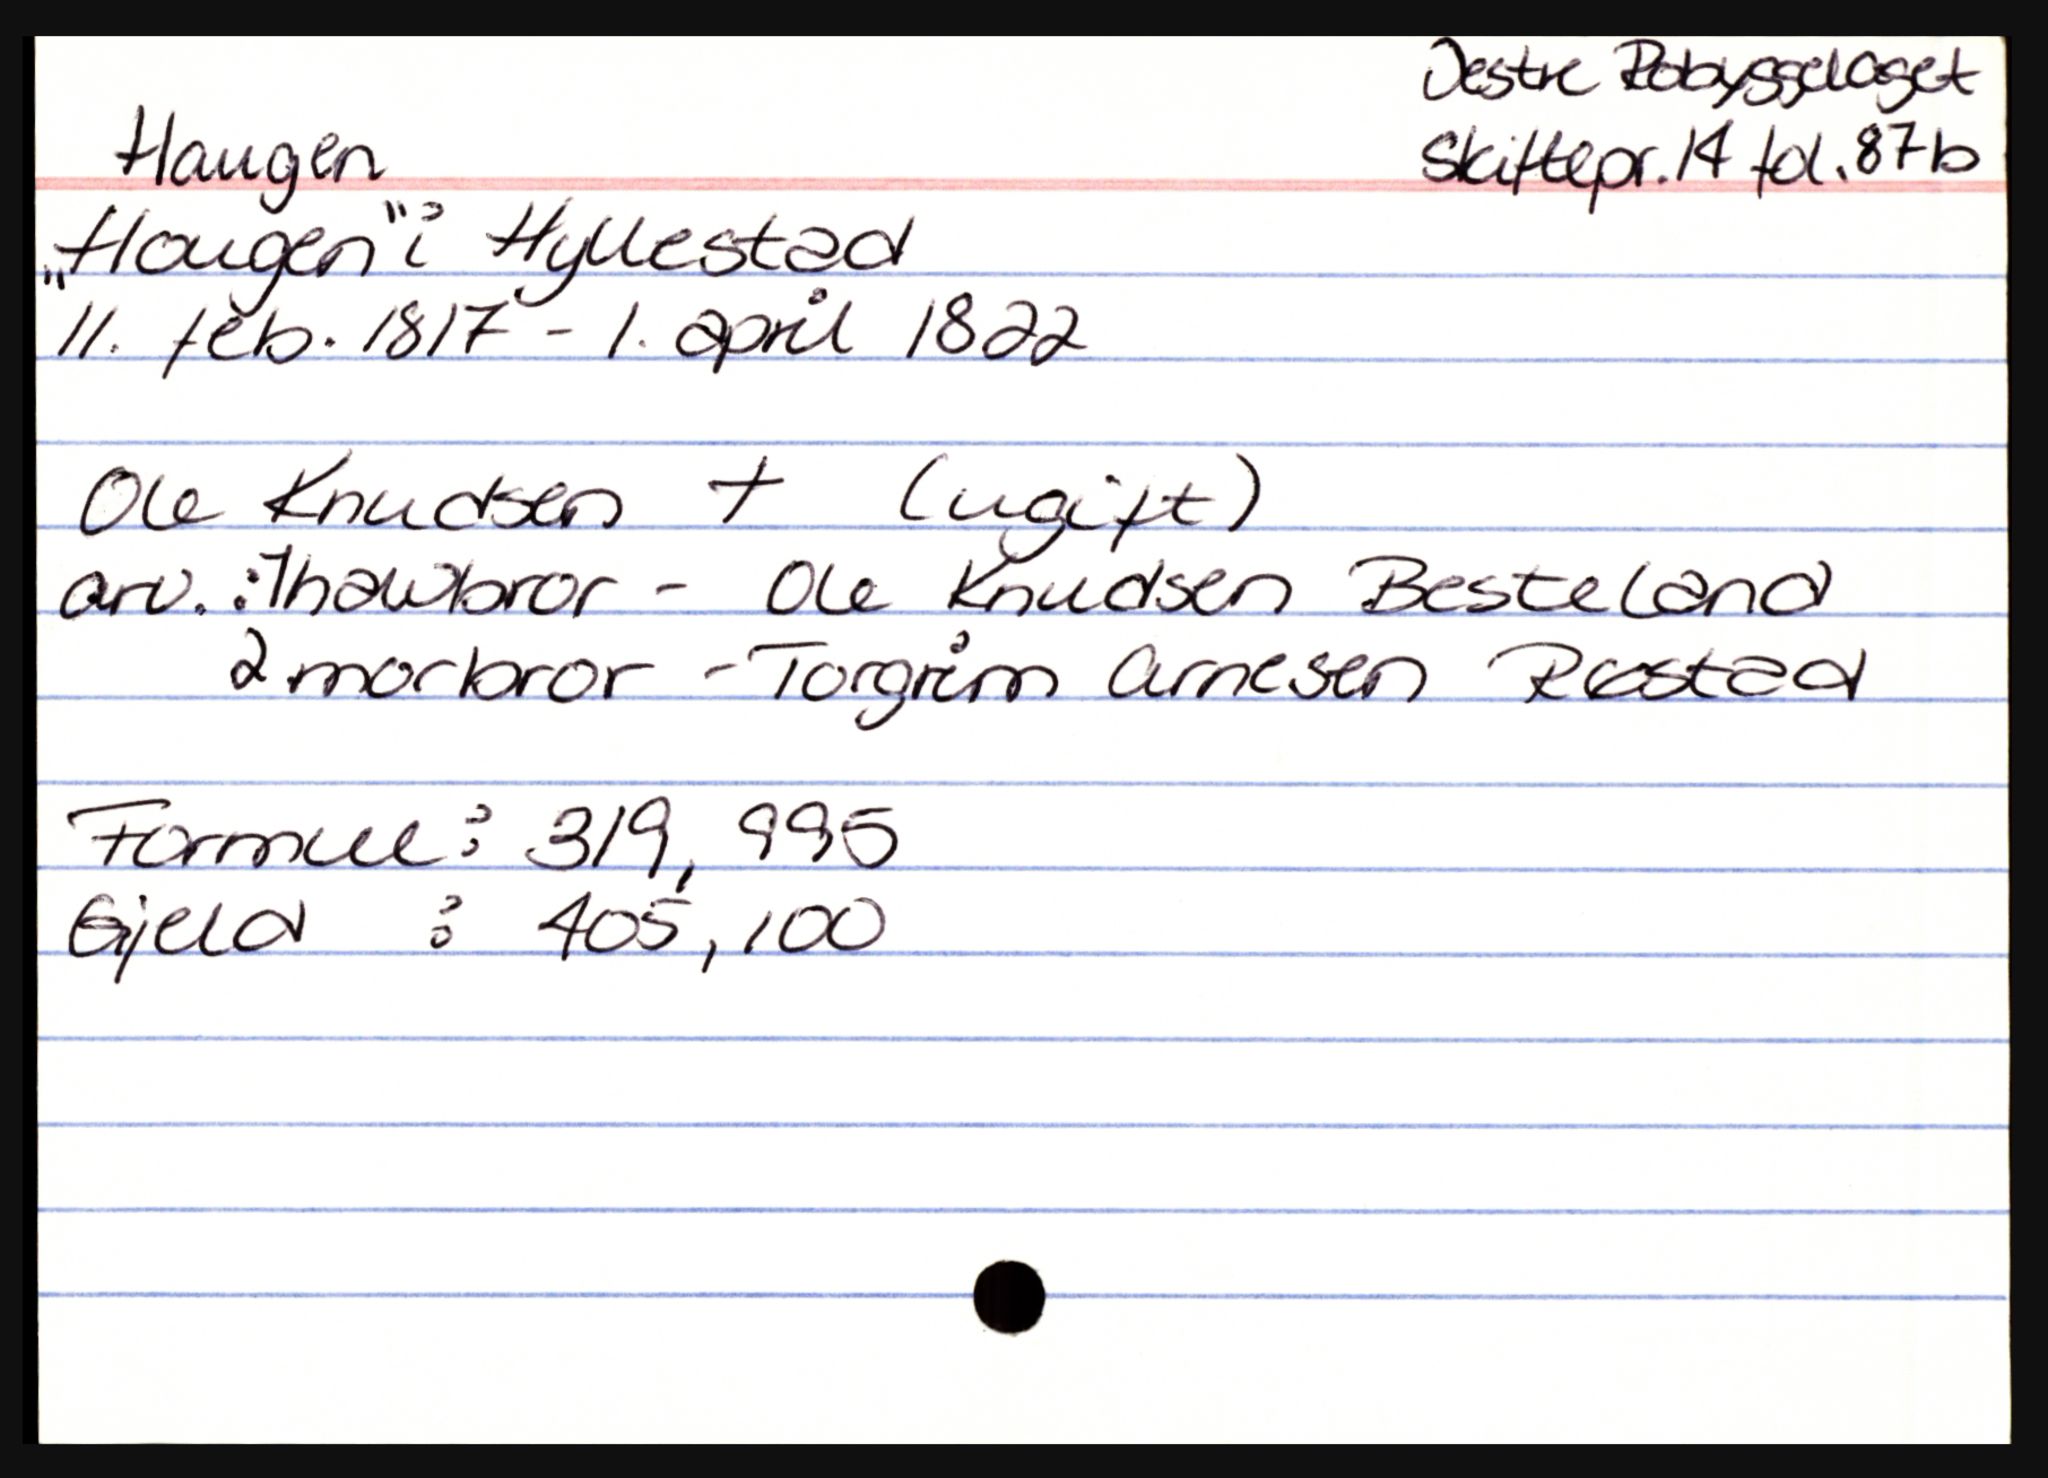 Vestre Robyggelaget
Haugen
Skiftepr. 14 fol. 87b
„Haugen" i Hyllestad
11. feb. 1817 - 1. april 1822
Ole Knudsen † (ugift)
arv. : 1 halvbror - Ole Knudsen Besteland
2 morbror - Torgrim Arnesen Rostad
Formue : 319, 995
Gjeld : 405, 100